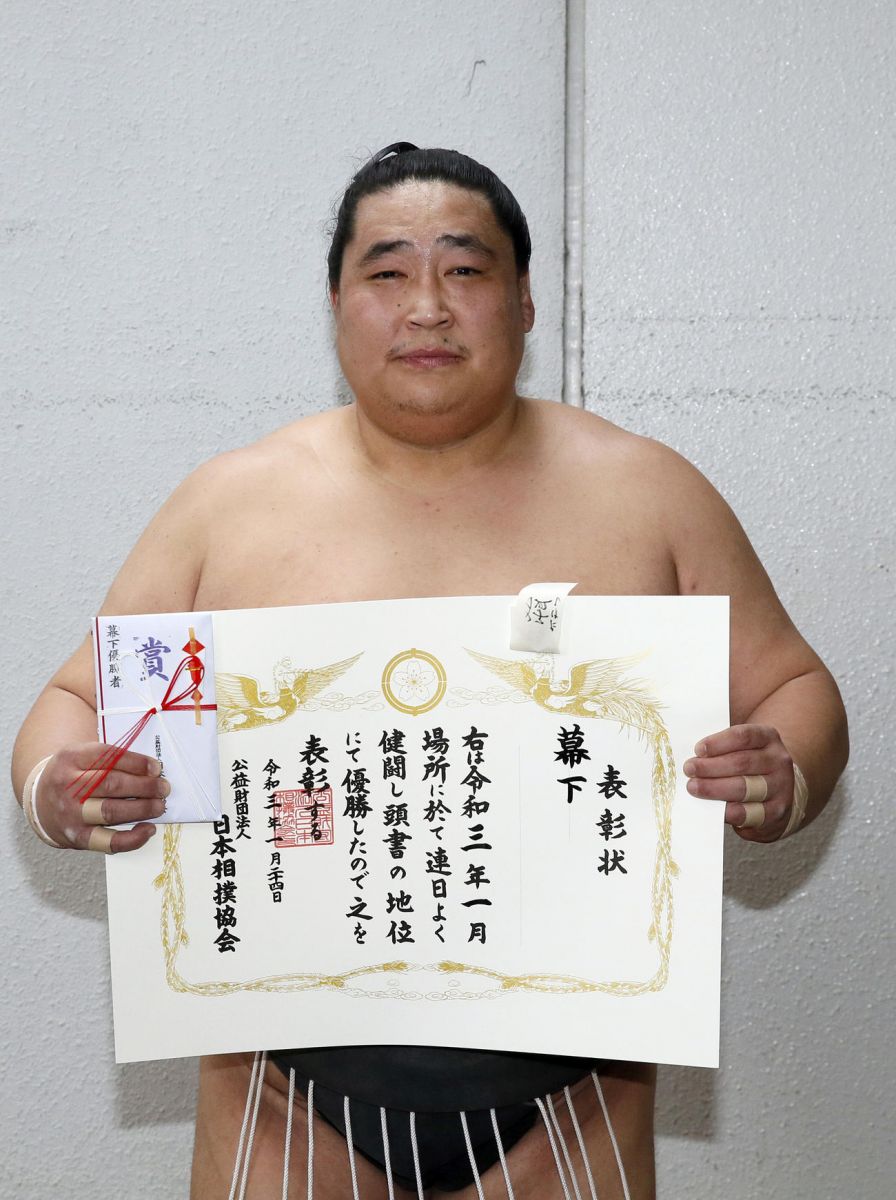 表彰状
幕下
右は令和三年一月
場所に於て連日よく
健闘し頭書の地位
にて優勝したので之を
表彰する
令和三年一月二十四日
公益財団法人
日本相撲協会
賞
幕下優勝者